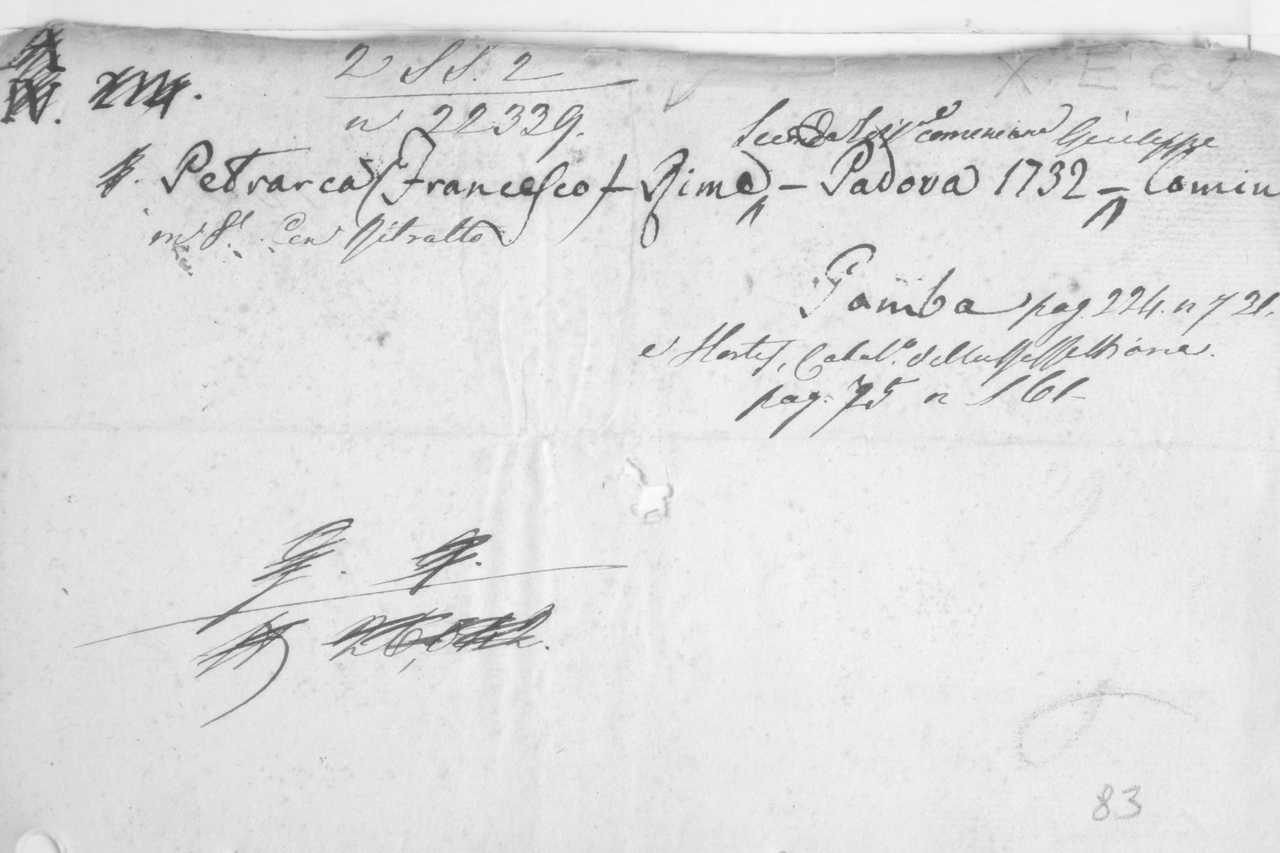 2 SS. 2
X.E.C.5
n 22339.
Seconda Ediz.e cominiana Giuseppe
Petrarca (Francesco) - Rime - Padova 1732 - Comin
in 8.º Con Ritratto
Gamba pag 224. n 721.
e Hortis, Catal.º della Rossettiana.
pag. 75 n 161
83